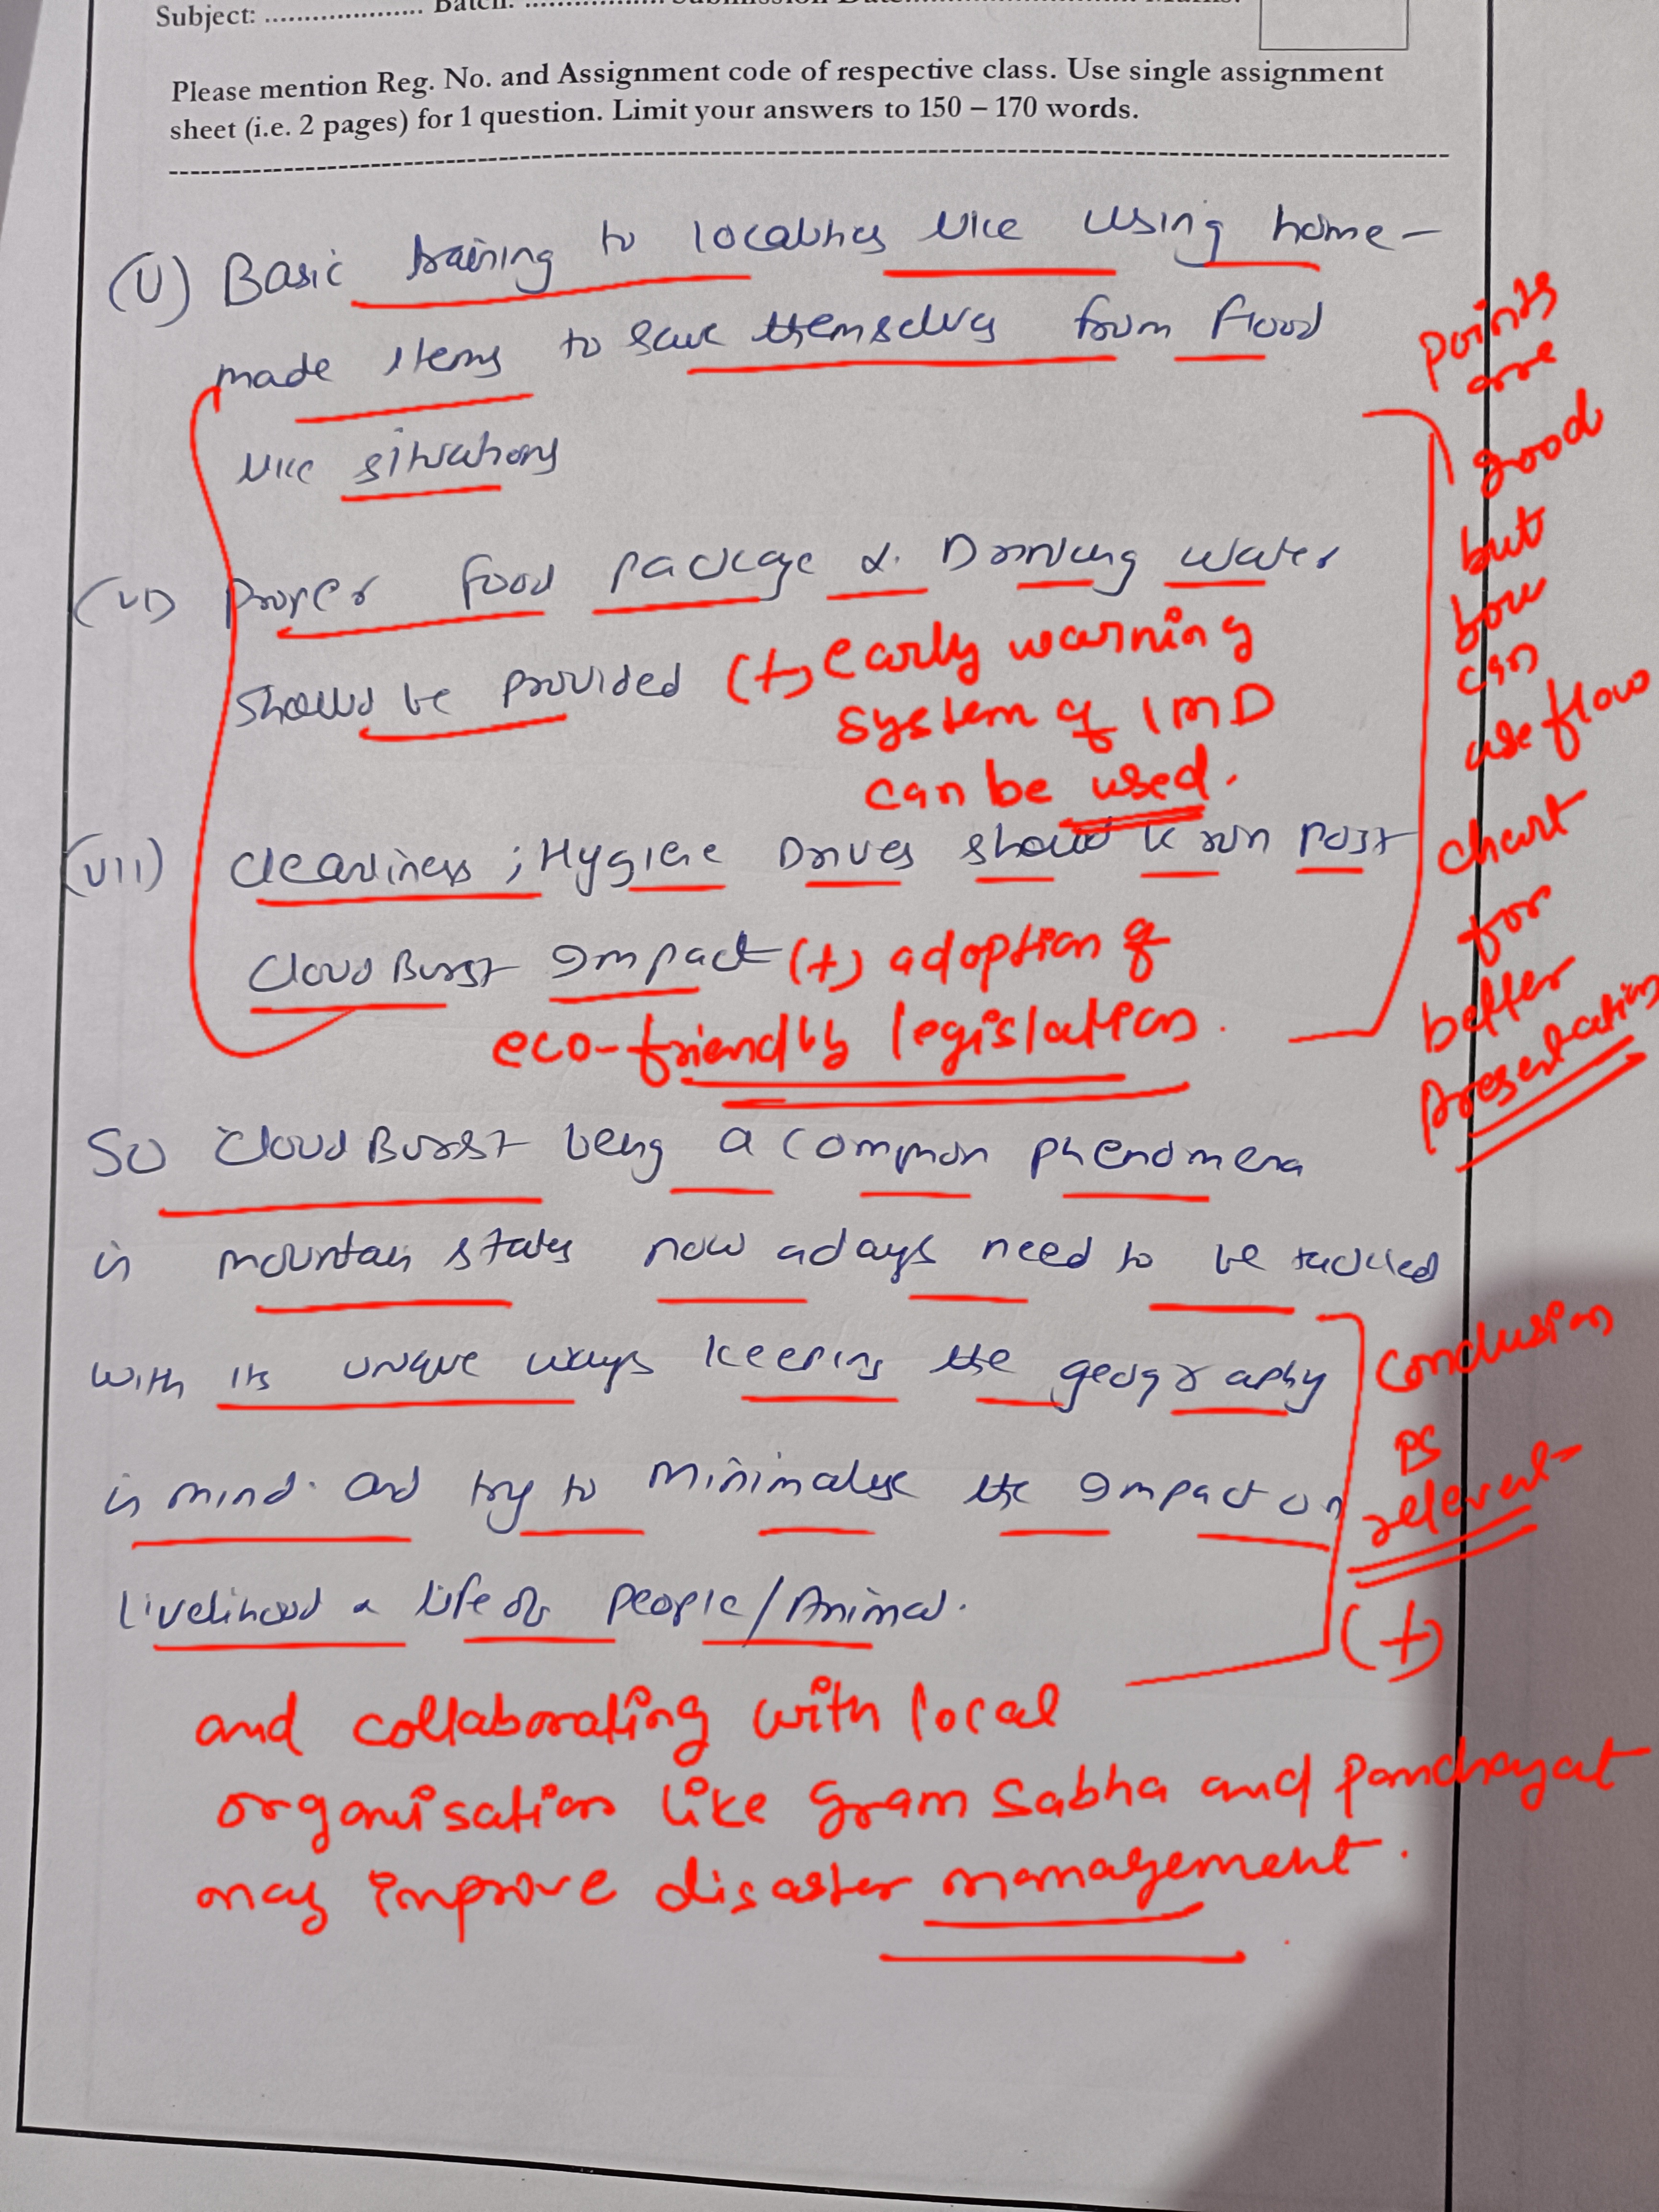 Subject: .................... Batch: .................. Submission Date............................. Marks:
Please mention Reg. No. and Assignment code of respective class. Use single assignment
sheet (i.e. 2 pages) for 1 question. Limit your answers to 150 – 170 words.
(V) Basic training to localities like using home-
made items to save themselves from flood
like situations
(VI) Proper food package & Drinking water
should be provided (+) early warning
system of IMD
can be used.
(VII) Cleanliness ; Hygiene Drives should be run Post
Cloud Burst Impact (+) adoption of
eco-friendly legislation.
Points
are
good
but
you
can
use flow
chart
for
better
presentation
So Cloud Burst being a common phenomena
in mountain states now adays need to be tackled
with its unique ways keeping the geography
in mind. And try to Minimalise the Impact on
Livelihood & life of people/Animal.
Conclusion
is
relevent
(+)
and collaborating with local
organisation like gram sabha and panchayat
may improve disaster management.